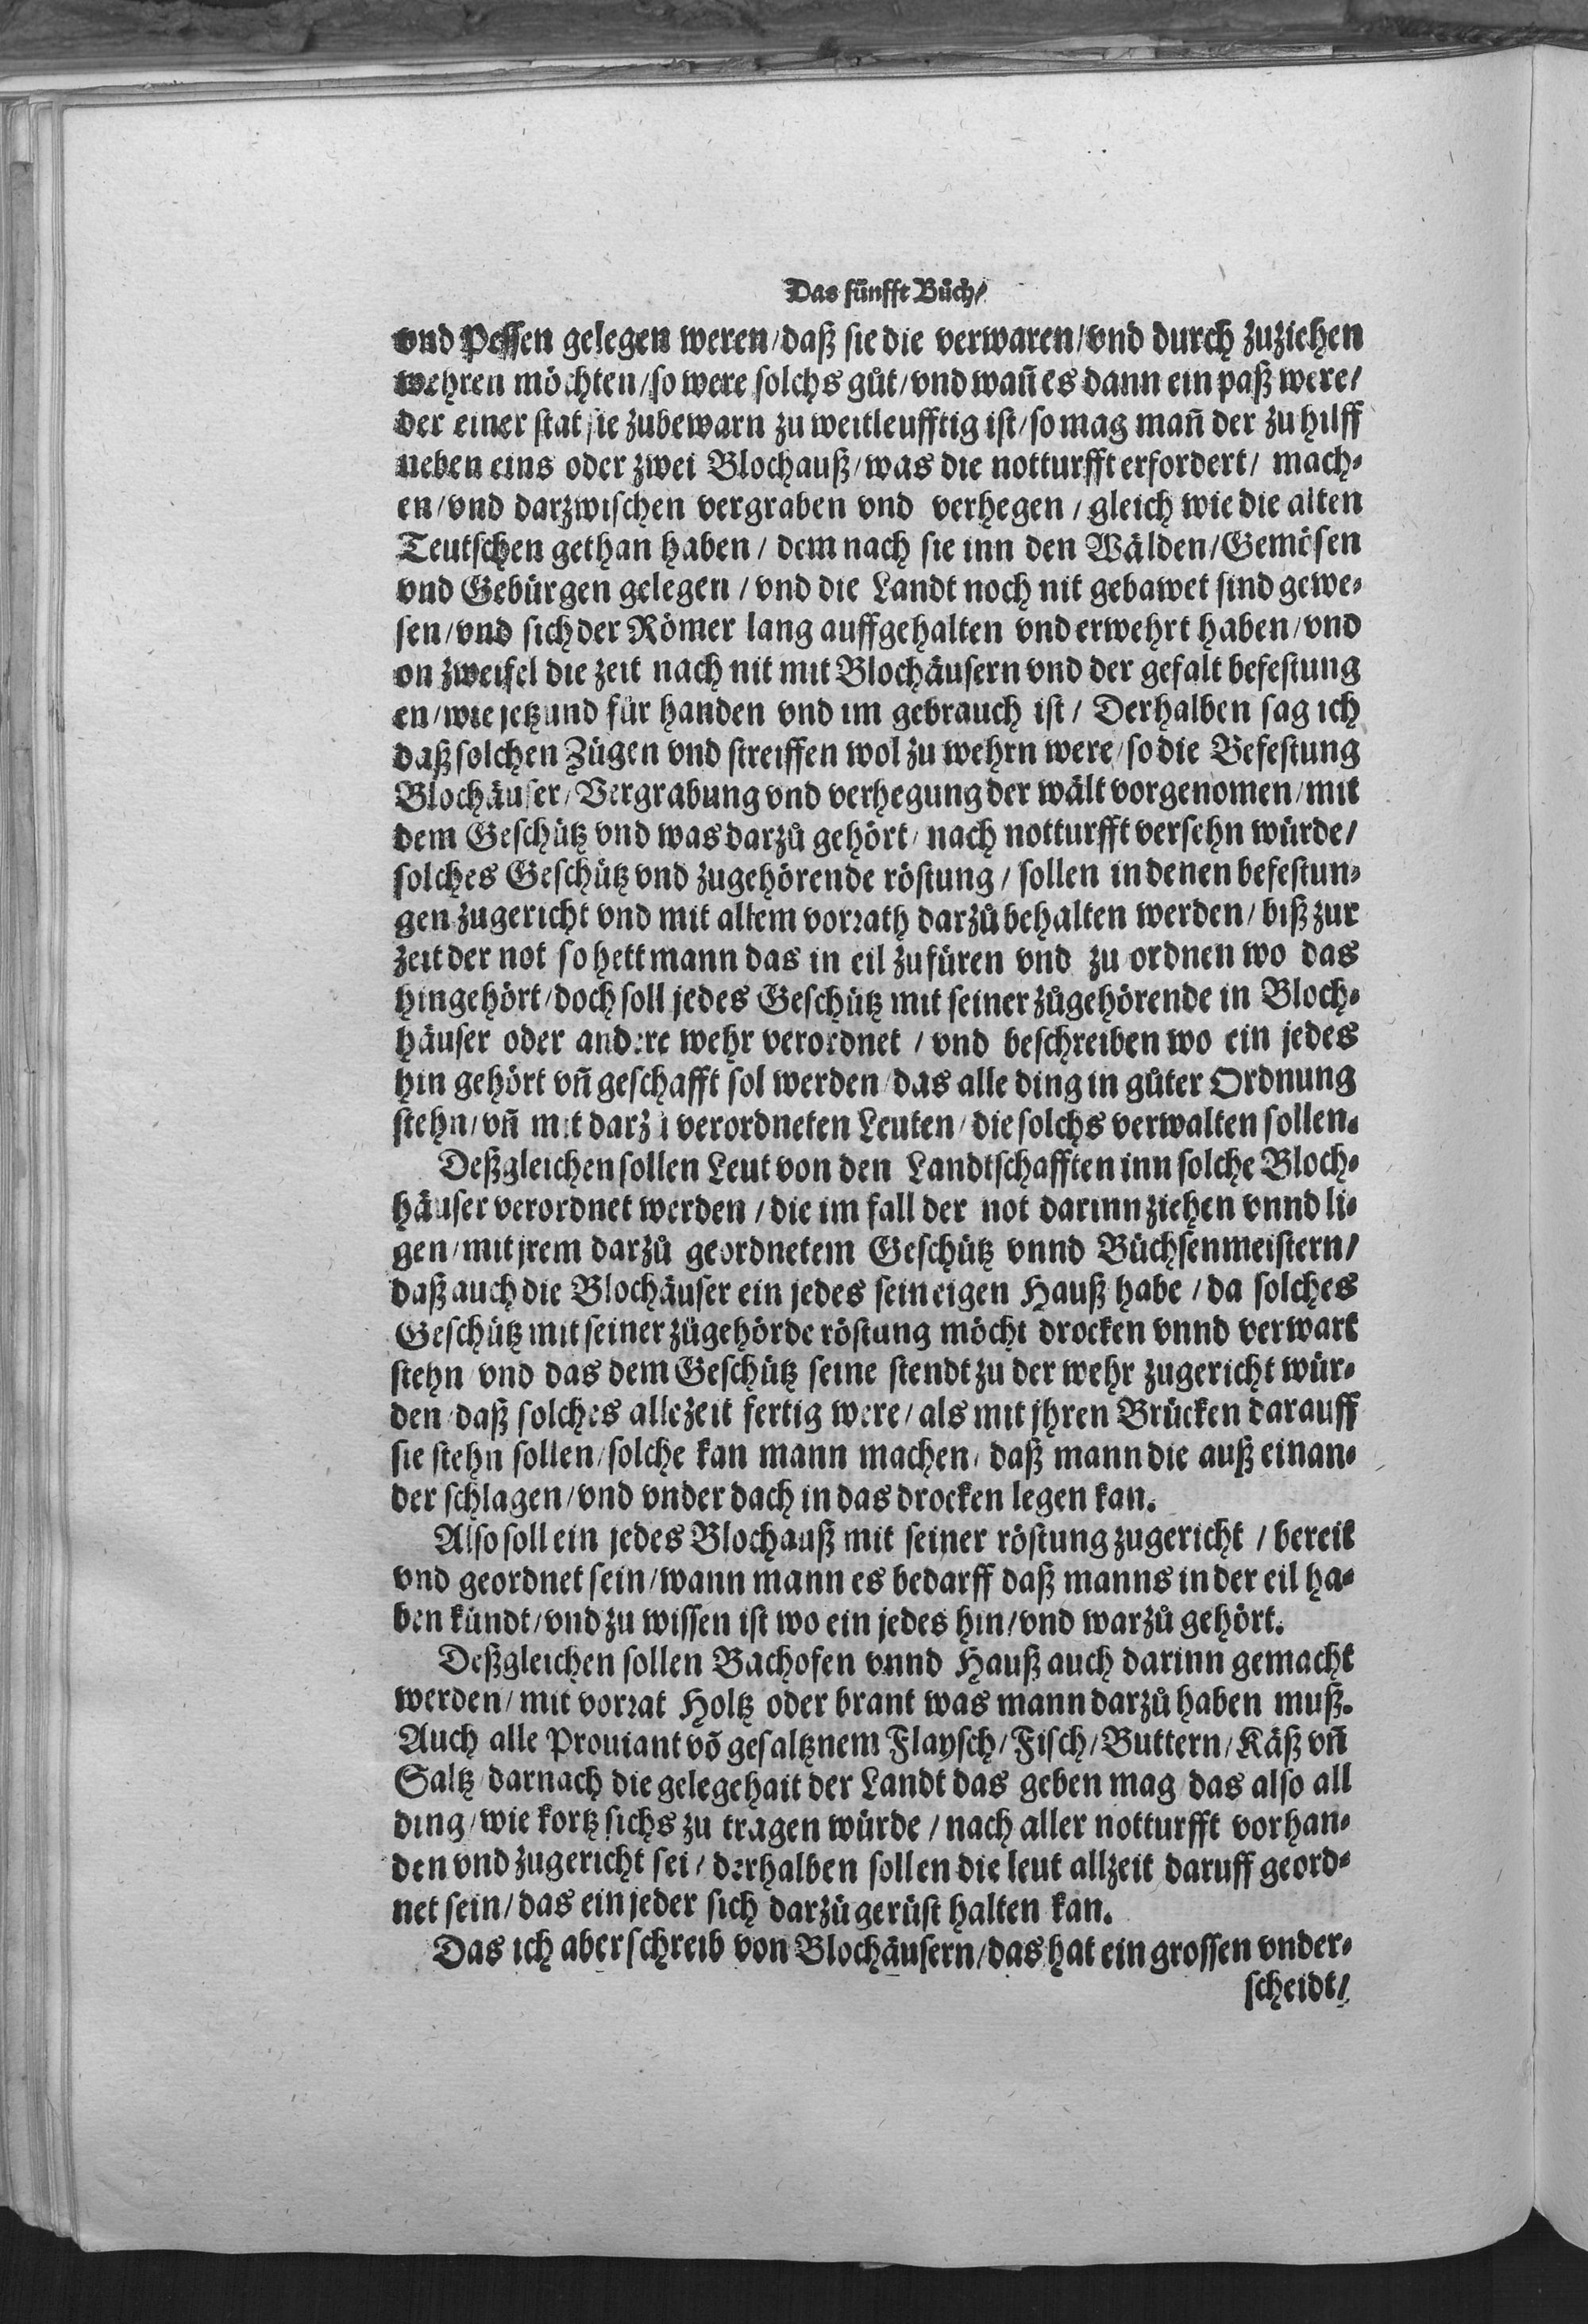 Das fünfft Bůch/
vnd Pessen gelegen weren/daß sie die verwaren/vnd durch zuziehen
wehren möchten/so were solchs gůt/vnd wañ es dann ein paß were/
der einer stat sie zubewarn zu weitleufftig ist/so mag mañ der zu hilff
neben eins oder zwei Blochauß/was die notturfft erfordert/ mach-
en/vnd darzwischen vergraben vnd verhegen/gleich wie die alten
Teutschen gethan haben/dem nach sie inn den Wälden/Gemösen
vnd Gebürgen gelegen/vnd die Landt noch nit gebawet sind gewe-
sen/vnd sich der Römer lang auffgehalten vnd erwehrt haben/vnd
on zweifel die zeit nach nit mit Blochäusern vnd der gestalt befestung
en/wie jetzund für handen vnd im gebrauch ist/ Derhalben sag ich
daß solchen Zügen vnd streiffen wol zu wehrn were/so die Befestung
Blochäuser/Vergrabung vnd verhegung der wält vorgenomen/mit
dem Geschütz vnd was darzů gehört/nach notturfft versehn würde/
solches Geschütz vnd zugehörende röstung/sollen in denen befestun-
gen zugericht vnd mit altem vorrath darzů behalten werden/biß zur
zeit der not so hett mann das in eil zufüren vnd zu ordnen wo das
hingehört/doch soll jedes Geschütz mit seiner zůgehörende in Bloch-
häuser oder andere wehr verordnet/vnd beschreiben wo ein jedes
hin gehört vñ geschafft sol werden/das alle ding in gůter Ordnung
stehn/vñ mit darzů verordneten Leuten/die solchs verwalten sollen.
Deßgleichen sollen Leut von den Landtschafften inn solche Bloch-
häuser verordnet werden/die im fall der not darinn ziehen vnnd li-
gen/mit jrem darzů geordnetem Geschütz vnnd Büchsenmeistern/
daß auch die Blochäuser ein jedes sein eigen Hauß habe/da solches
Geschütz mit seiner zůgehörde röstung möcht drocken vnnd verwart
stehn/vnd das dem Geschütz seine stendt zu der wehr zugericht wür-
den/daß solches allezeit fertig were/als mit jhren Brücken darauff
sie stehn sollen/solche kan mann machen/daß mann die auß einan-
der schlagen/vnd vnder dach in das drocken legen kan.
Also soll ein jedes Blochauß mit seiner röstung zugericht/bereit
vnd geordnet sein/wann mann es bedarff daß manns in der eil ha-
ben kündt/vnd zu wissen ist wo ein jedes hin/vnd warzů gehört.
Deßgleichen sollen Bachofen vnnd Hauß auch darinn gemacht
werden/mit vorrat Holtz oder brant was mann darzů haben muß.
Auch alle Prouiant võ gesaltznem Flaysch/Fisch/Buttern/Käß vñ
Saltz/darnach die gelegehait der Landt das geben mag/das also all
ding/wie kortz sichs zu tragen würde/nach aller notturfft vorhan-
den vnd zugericht sei/derhalben sollen die leut allzeit daruff geord-
net sein/das ein jeder sich darzů gerüst halten kan.
Das ich aber schreib von Blochäusern/das hat ein grossen vnder-
scheidt/